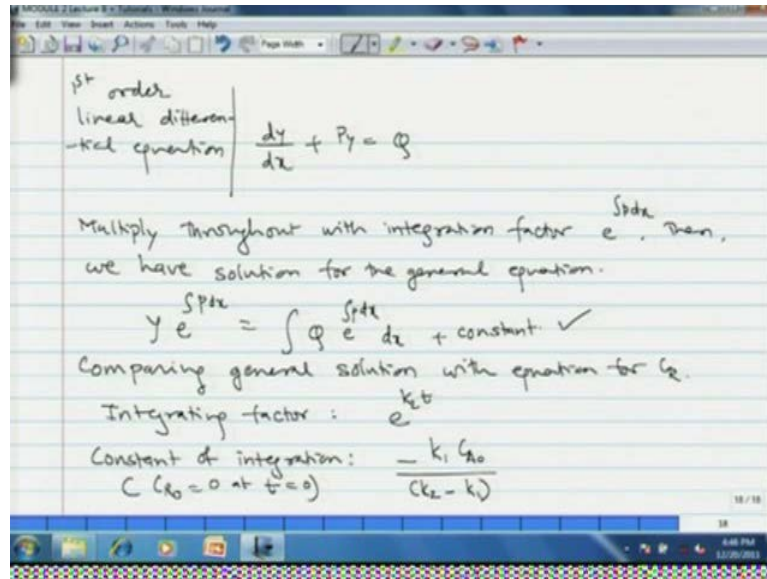 MODULE 2 Lecture 8 + Tutorials - Windows Journal
File Edit View Insert Actions Tools Help
Page Width
1st order
linear differen-
-tial equation
dy/dx + Py = Q
Multiply throughout with integration factor e^∫Pdx. Then,
we have solution for the general equation.
y e^∫Pdx = ∫ Q e^∫Pdx dx + constant. ✓
Comparing general solution with equation for C_R.
Integrating factor : e^k₂t
Constant of integration: - k₁ C_A₀ / (k₂ - k₁)
( C_R₀ = 0 at t = 0)
18 / 18
18
4:46 PM
12/20/2011